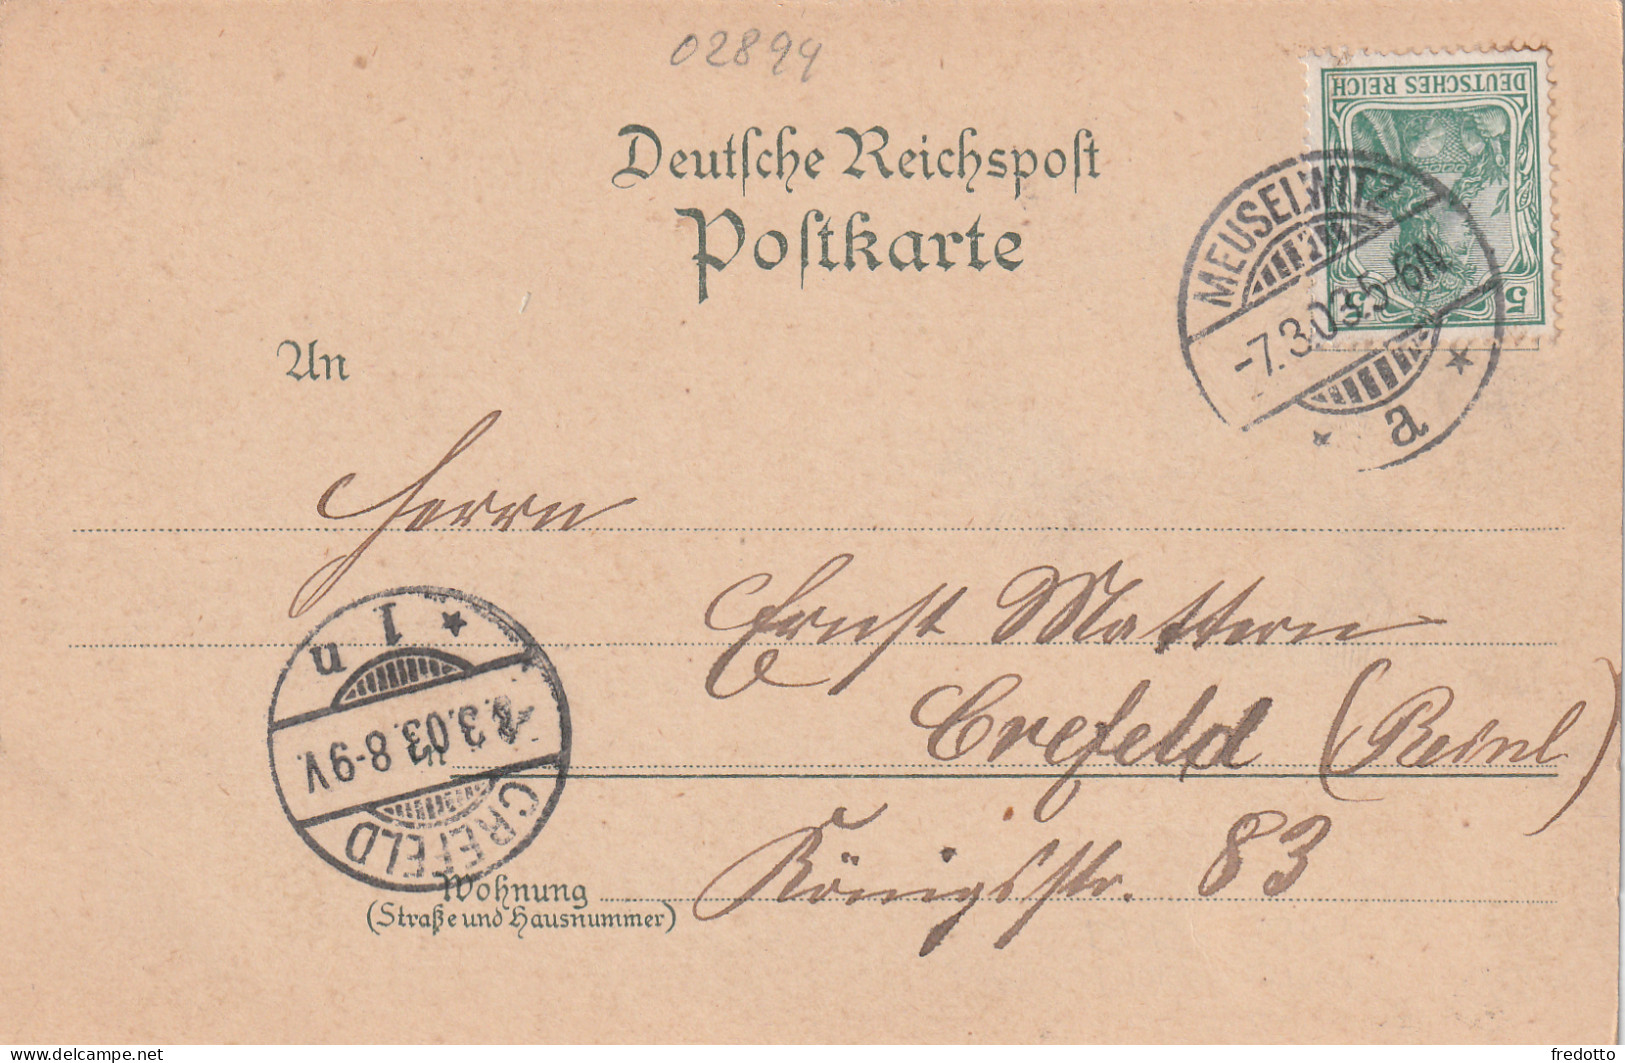 02894
DEUTSCHES REICH
5 5
Deutsche Reichspost
Postkarte
MEUSELWITZ
-7.3.03.5-6N
* a *
An
Herrn
Ernst Mattern
Crefeld (Rheinl)
in
Königsstr. 83
Wohnung
(Straße und Hausnummer)
CREFELD
8.3.03.8-9V.
* 1 n
www.delcampe.net
fredotto